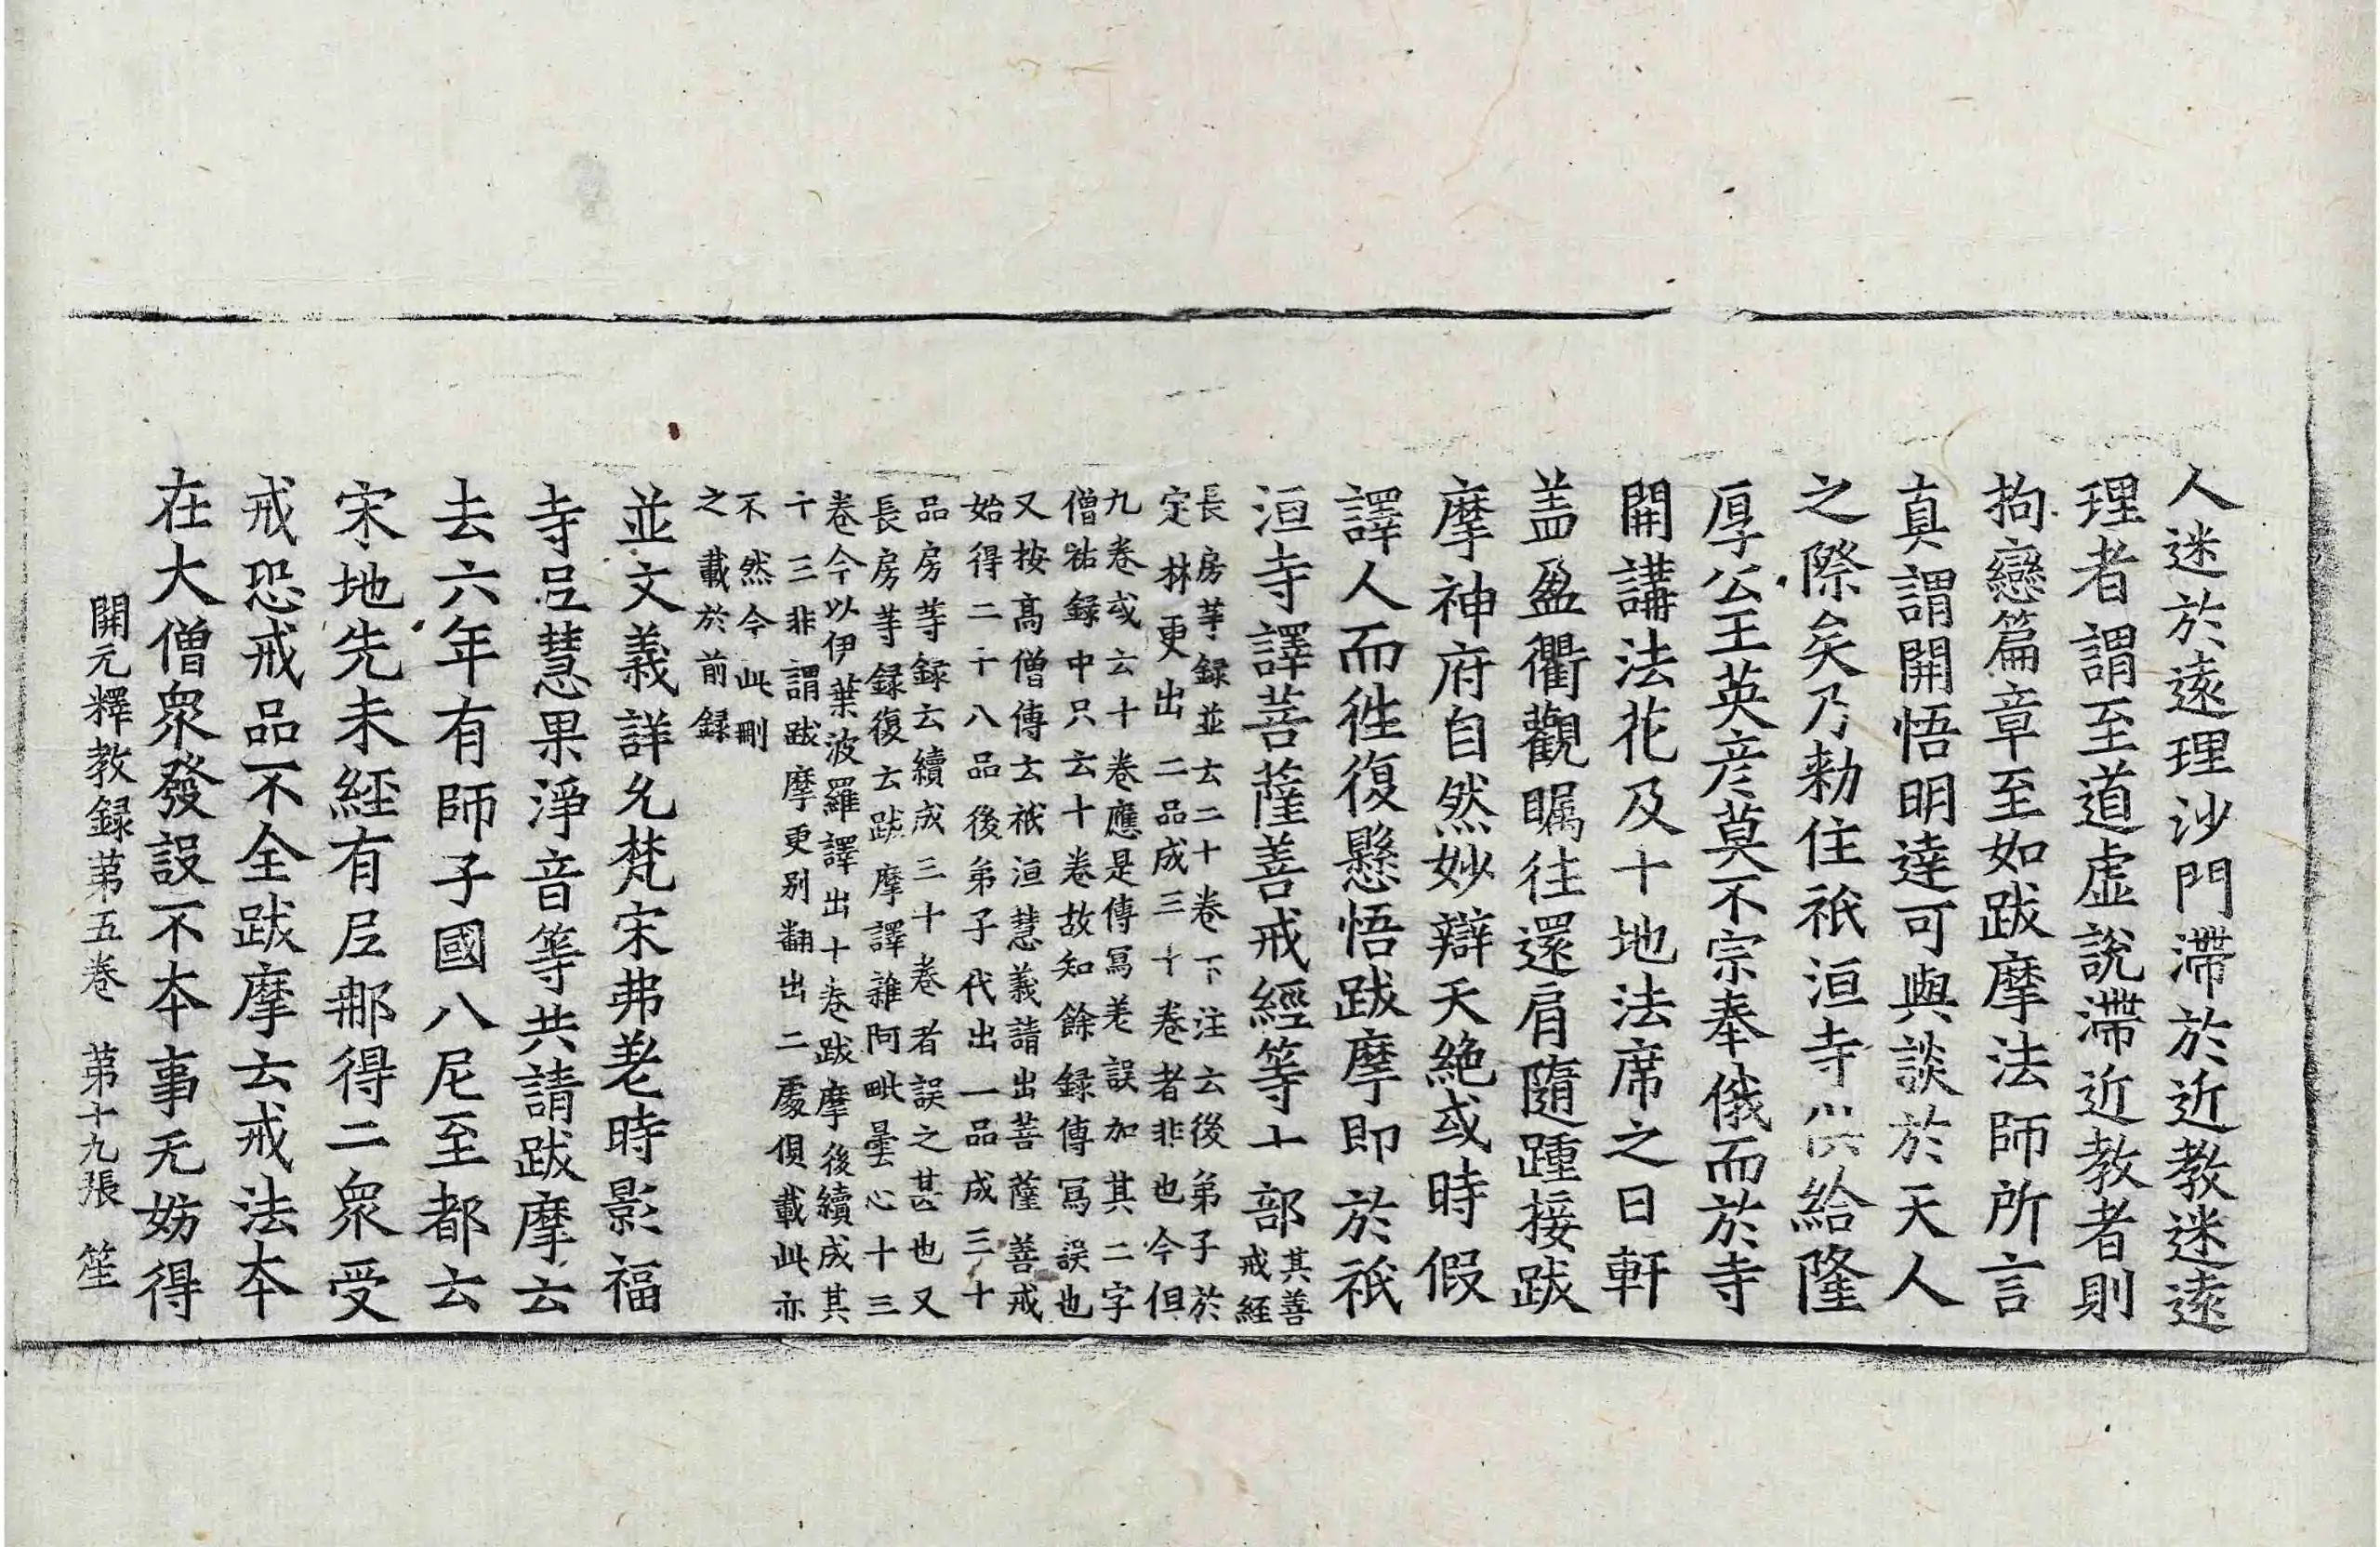 人迷於遠理沙門滯於近教迷遠
理者謂至道虛說滯近教者則
拘戀篇章至如跋摩法師所言
真謂開悟明達可與談於天人
之際矣乃勑住祇洹寺供給隆
厚公王英彦莫不宗奉俄而於寺
開講法花及十地法席之日軒
盖盈衢觀矚往還肩隨踵接跋
摩神府自然妙辯天絶或時假
譯人而徃復懸悟跋摩即於祇
洹寺譯菩薩善戒經等十部其善
戒經
長房等録並云二十卷下注云後弟子於
定林更出二品成三十卷者非也今但
九卷或云十卷應是傳寫差誤加其二字
僧祐録中只云十卷故知餘録傳寫誤也
又按髙僧傳云祇洹慧義請出菩薩善戒
始得二十八品後弟子代出一品成三十
品房等録云續成三十卷者誤之甚也又
長房等録復云跋摩譯雜阿毗曇心十三
卷今以伊葉波羅譯出十卷跋摩後續成其
十三非謂跋摩更别翻出二處俱載此亦
不然今此刪
之載於前録
並文義詳允梵宋弗差時影福
寺尼慧果淨音等共請跋摩云
去六年有師子國八尼至都云
宋地先未經有尼那得二衆受
戒恐戒品不全跋摩云戒法本
在大僧衆發設不本事无妨得
開元釋教録第五卷 第十九張 笙